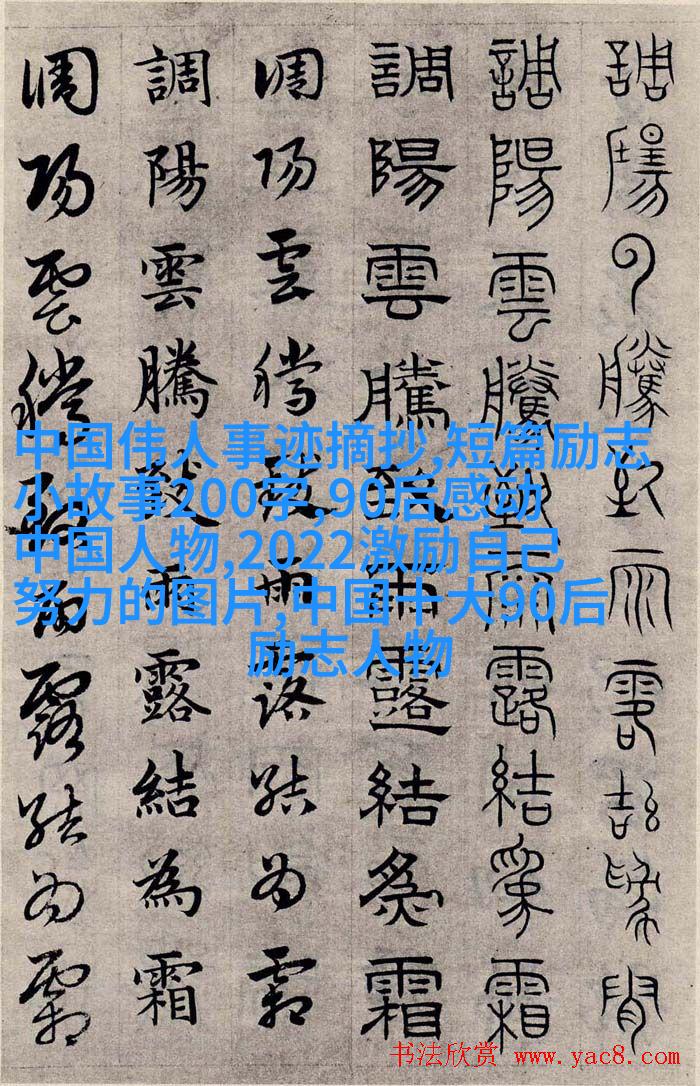 調陽雲騰致雨露結為霜
調陽雲騰致雨露結為霜
調陽雲騰致雨露結為霜
調陽雲騰致雨露結為霜
調陽雲騰致雨露結為霜
調陽雲騰致雨露結為霜
中国伟人事迹摘抄,短篇励志
小故事200字,90后感动
中国人物,2022激励自己
努力的图片,中国十大90后
励志人物
书法欣赏 www.yac8.com